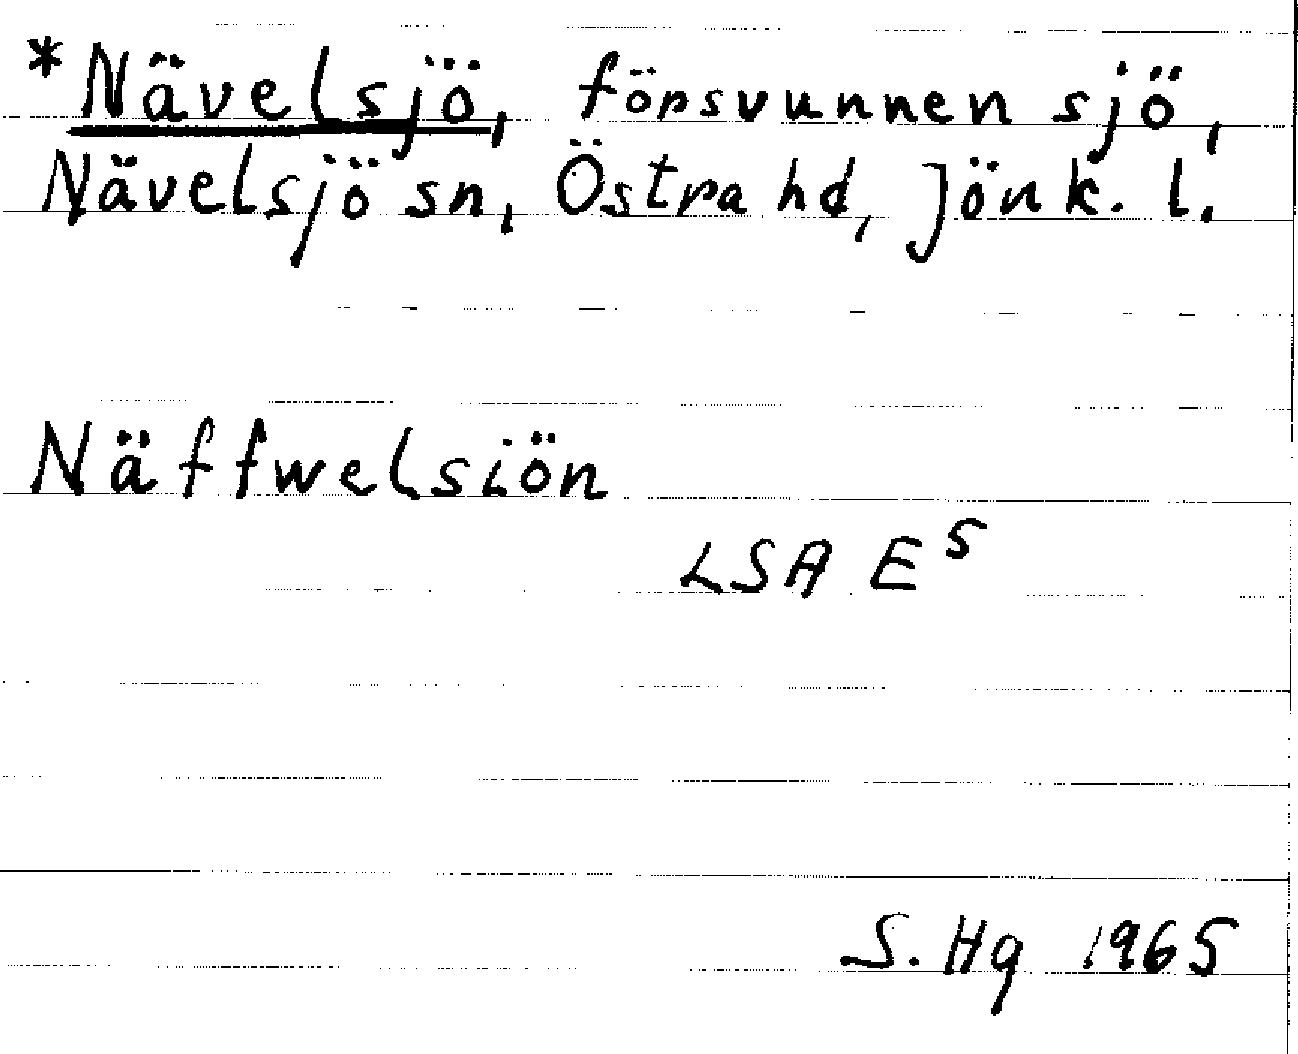 *Nävelsjö, försvunnen sjö,
Nävelsjö sn, Östra hd, Jönk. l.
Näffwelsiön
LSA E⁵
S. Hg 1965